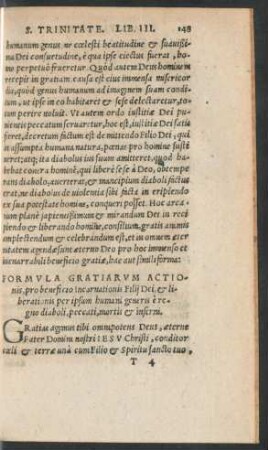 S. TRINITATE. LIB. III. 148
humanum genus ut cœlesti beatitudine & suauissi-
ma Dei consuetudine, è qua ipse eiectus fuerat, ho-
mo perpetuò frueretur. Quòd autem Deus hominem
recepit in gratiam causa est eius immensa misericor
dia, quòd genus humanum ad imaginem suam condi-
tum, ut ipse in eo habitaret & sese delectaretur, to-
tum perire noluit. Vt autem ordo iustitiæ Dei puni-
entis peccatum seruaretur, hoc est, iustitiæ Dei satis
fieret, decretum factum est de mittendo Filio Dei, qui
in assumpta humana natura, pœnas pro homine susti
neret: atq; ita diabolus ius suum amitteret, quod ha-
bebat contra hominē, qui liberè sese à Deo, obtempe
rans diabolo, auerterat, & mancipium diaboli factus
erat, ne diabolus de uiolentis sibi picta in eripiendo
ex sua potestate homine, conqueri posset. Hoc arca-
num planè sapientissimum & mirandum Dei in reci
piendo & liberando homine, consilium, gratis animis
amplectendum & celebrandum est, & in omni æuitate
autem agendæ sunt æterno Deo pro hoc immenso et
inenarrabili beneficio gratiæ, hac aut simili forma:
FORMVLA GRATIARVM ACTIO-
nis, pro beneficio incarnationis Filij Dei, & li-
berationis per ipsum humani generis è re-
gno diaboli, peccati, mortis & inferni.
Gratias agimus tibi omnipotens Deus, æterne
Pater Domini nostri IESV Christi, conditor
cœli & terræ unà cum Filio & Spiritu sancto tuo,
T 4